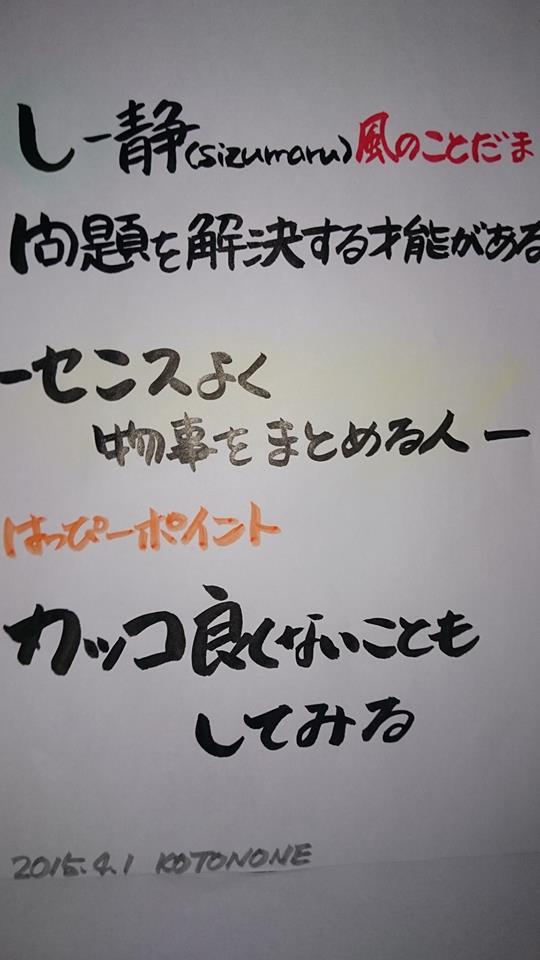 し－静(sizumaru)風のことだま
問題を解決する才能がある
ーセンスよく
物事をまとめる人ー
はっぴーポイント
カッコ良くないことも
してみる
2015.4.1 KOTONONE